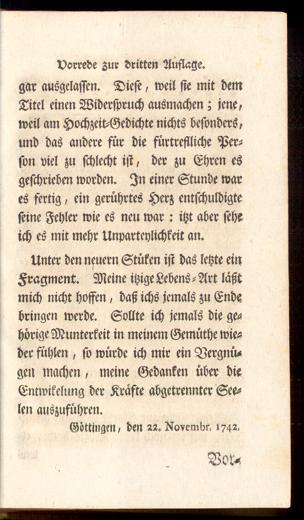 Vorrede zur dritten Auflage.
gar ausgelassen. Diese, weil sie mit dem
Titel einen Widerspruch ausmachen; jene,
weil am Hochzeit-Gedichte nichts besonders,
und das andere für die fürtreflliche Per-
son viel zu schlecht ist, der zu Ehren es
geschrieben worden. In einer Stunde war
es fertig, ein gerührtes Herz entschuldigte
seine Fehler wie es neu war: itzt aber sehe
ich es mit mehr Unparteylichkeit an.
Unter den neuern Stüken ist das letzte ein
Fragment. Meine itzige Lebens-Art läßt
mich nicht hoffen, daß ichs jemals zu Ende
bringen werde. Sollte ich jemals die ge-
hörige Munterkeit in meinem Gemüthe wie-
der fühlen, so würde ich mir ein Vergnü-
gen machen, meine Gedanken über die
Entwikelung der Kräfte abgetrennter See-
len auszuführen.
Göttingen, den 22. Novembr. 1742.
Vor-